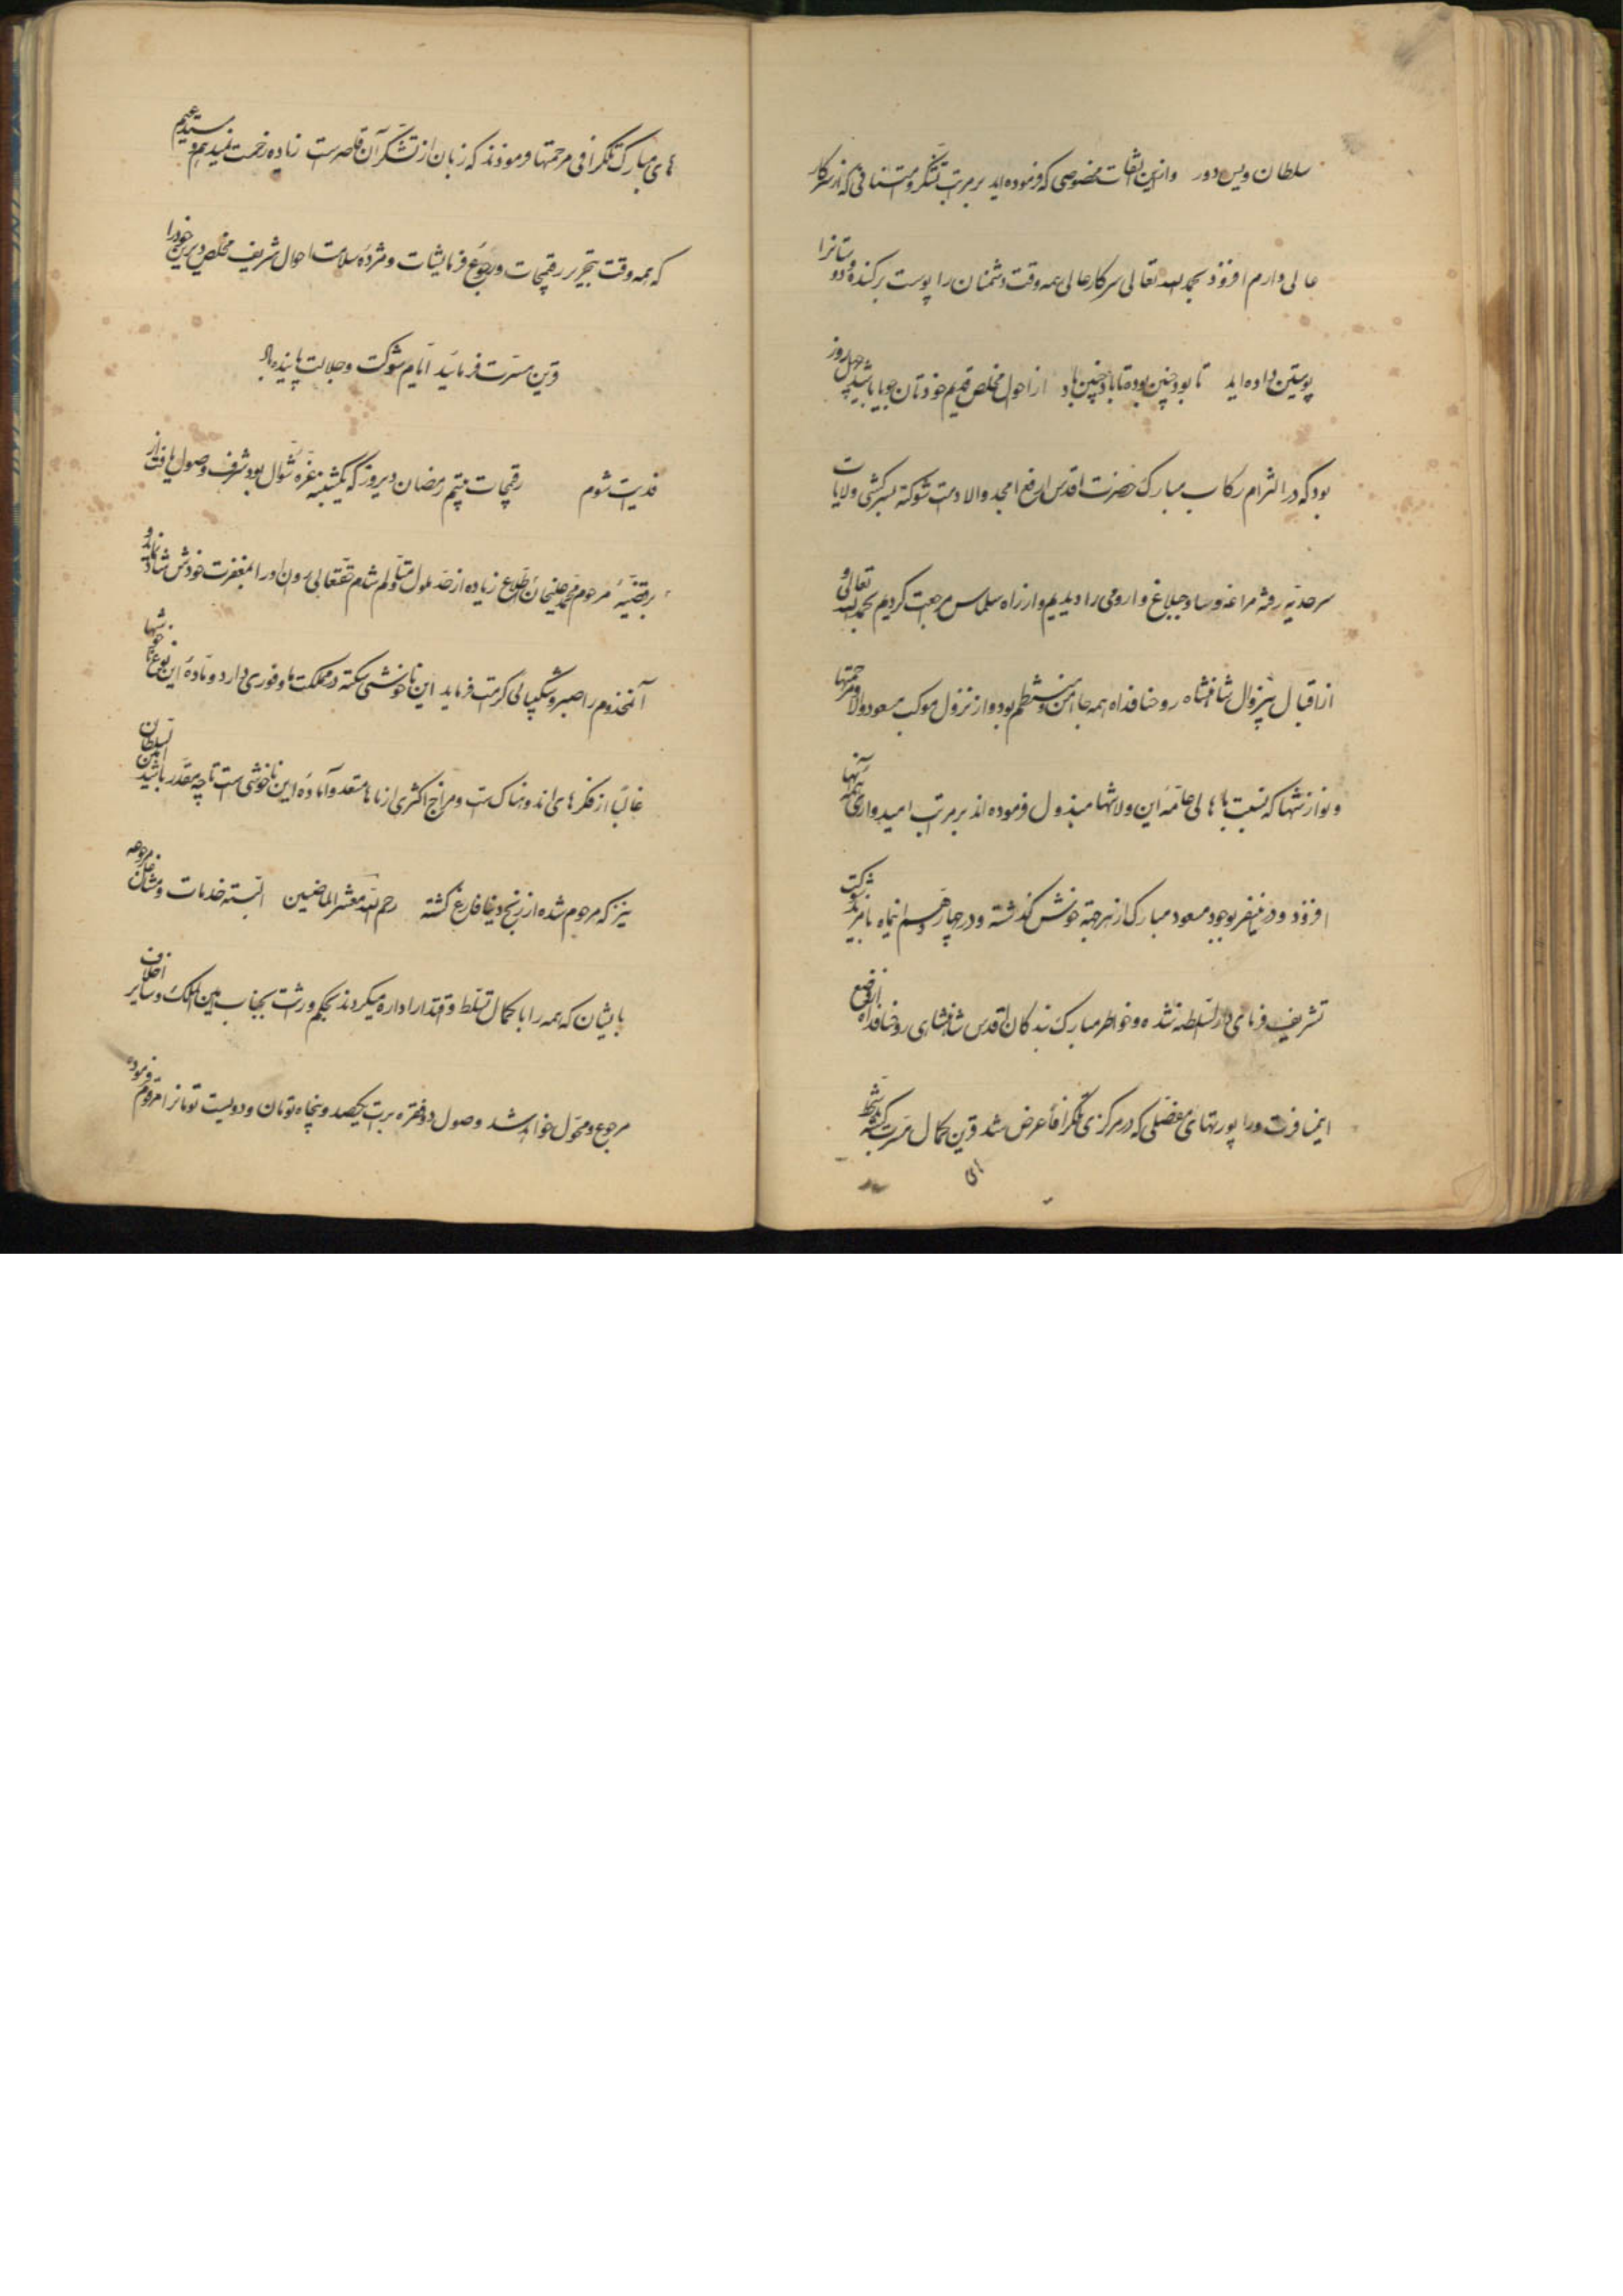 سلطان ویس دور و از این التفات مخصوصی که فرموده‌اید بر مراتب تشکر و امتنانی که از سرکار
عالی دارم افزود بحمد الله تعالی سرکار عالی همه وقت دشمنان را پوست برکنده و دوستانرا
پوستین داده‌اید تا بود چنین بوده تا باد چنین باد از احوال مخلص قدیم خودتان جویا باشید چهل روز
بود که در التزام رکاب مبارک حضرت اقدس ارفع امجد والا دامت شوکته بسرکشی ولایات
سرحدیه رفته مراغه و ساوجبلاغ و ارومی را دیدیم و از راه سلماس مراجعت کردیم بحمد الله تعالی و
از اقبال بیزوال شاهنشاه روحنا فداه همه جا امن و منتظم بود و از نزول موکب مسعود والا و مرحمتها
و نوازشها که نسبت باهالی عامه این ولایتها مبذول فرموده‌اند بر مراتب امیدواری همه آنها
افزود و در این سفر بوجود مسعود مبارک از هر جهة خوش گذشته و در چهاردهم اینماه با مزید شوکت
تشریف فرمای دار السلطنه شده و خاطر مبارک بندگان اقدس شاهنشاهی روحنا فداه از وضع
این مسافرت و راپورتهای مفصلی که در مرکزی تلگرافاً عرض شد قرین کمال مسرت گشته
های مبارک تلگرافی مرحمتها فرمودند که زبان از تشکر آن قاصر است زیاده زحمت نمیدهم و مستدعیم
که همه وقت بتحریر رقیمجات و رجوع فرمایشات و مژده سلامت احوال شریف مخلص دیرین خود را
قرین مسرت فرمائید ایام شوکت و جلالت پاینده باد
فدیت شوم رقیمجات بیستم رمضان دیروز که یکشنبه غره شوال بود شرف وصول یافت از
بر قضیه مرحوم محمد علیخان اطلاع زیاده از حد ملول و متألم شدم حقتعالی روان او را بمغفرت خودش شاد کناد و
آنمخدوم را صبر و شکیبائی کرامت فرماید این ناخوشی سکته در مملکت ما وفوری دارد و ماده این نوع ناخوشیها
غالباً از فکرهای اندوهناک است و مزاج اکثری از ماها مستعد و آماده این ناخوشی است تا چه مقدر باشد
نیز که مرحوم شده از رنج دنیا فارغ گشته رحم الله معشر الماضین البته خدمات و مشاغل مرجوعه
بایشان که همه را با کمال تسلط و اقتدار اداره میکردند بحکم وراثت بجناب امین الملک و سایر اخلاف
مرجوع و محول خواهد شد وصول دو فقره برات یکصد و پنجاه تومان و دویست تومانرا مرقوم فرموده